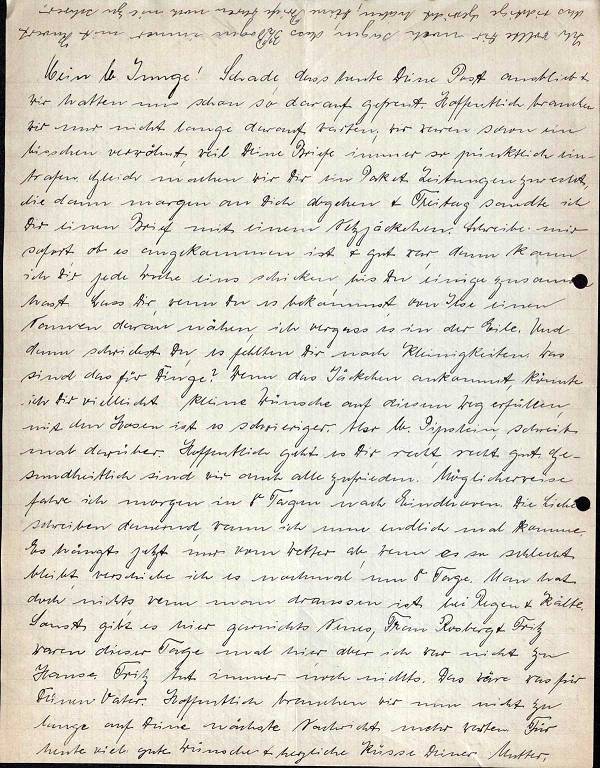 Mein lb Junge! Schade dass heute Deine Post ausblieb &
wir hatten uns schon so darauf gefreut. Hoffentlich brauchen
wir nur nicht lange darauf warten, wir waren schon ein
bisschen verwöhnt, weil Deine Briefe immer so pünktlich ein-
trafen. Gleich machen wir Dir ein Paket Zeitungen zurecht,
die dann morgen an Dich abgehen & Freitag sandte ich
Dir einen Brief mit einem Netzjäckchen. Schreibe mir
sofort ob es angekommen ist & gut war, dann kann
ich Dir jede Woche eins schicken, bis Du einige zusammen
hast. Lass Dir, wenn Du es bekommst von Ilse einen
Namen daran nähen, ich vergass es in der Eile. Und
dann schriebst Du, es fehlten Dir noch Kleinigkeiten. Was
sind das für Dinge? Wenn das Jäckchen ankommt, könnte
ich Dir vielleicht kleine Wünsche auf diesem Weg erfüllen,
mit den Hosen ist es schwieriger. Also lb. Pipslein, schreib
mal darüber. Hoffentlich geht es Dir recht, recht gut. Ge-
sundheitlich sind wir auch alle zufrieden. Möglicherweise
fahre ich morgen in 8 Tagen nach Eindhoven. Die Lieben
schreiben dauernd, wann ich nun endlich mal komme.
Es hängt jetzt nur vom Wetter ab, wenn es so schlecht
bleibt, verschiebe ich es nochmal um 8 Tage. Man hat
doch nichts, wenn man draussen ist bei Regen & Kälte.
Sonst gibt es hier garnichts Neues, Frau Rosberg & Fritz
waren dieser Tage mal hier aber ich war nicht zu
Hause. Fritz tut immer noch nichts. Das wäre was für
Deinen Vater. Hoffentlich brauchen wir nun nicht zu
lange auf Deine nächste Nachricht mehr warten. Für
heute viele gute Wünsche & herzliche Küsse Deiner Mutter.
Ich wollte Dir noch sagen, dass immer mit